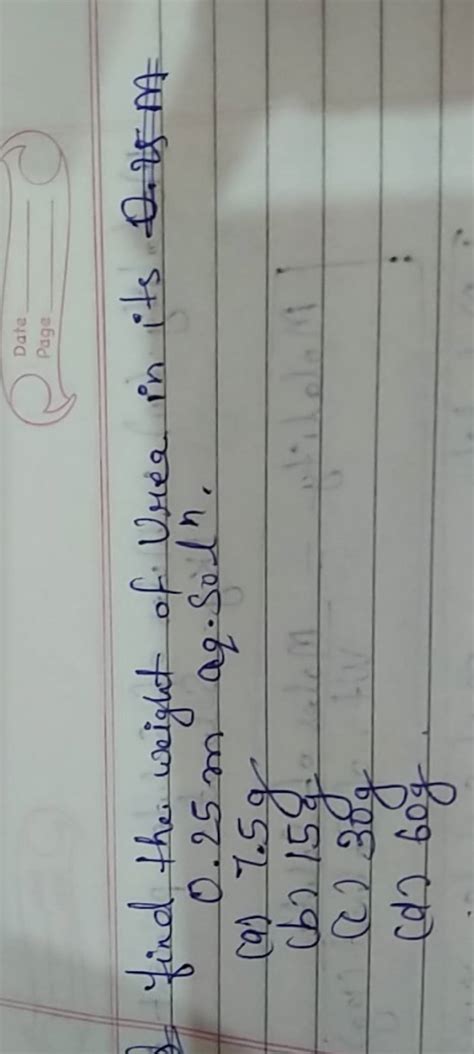 Date
Page
Q find the weight of Urea in its 0.25 M
0.25 m aq. Solⁿ.
(a) 7.5g
(b) 15g
(c) 30g
(d) 60g